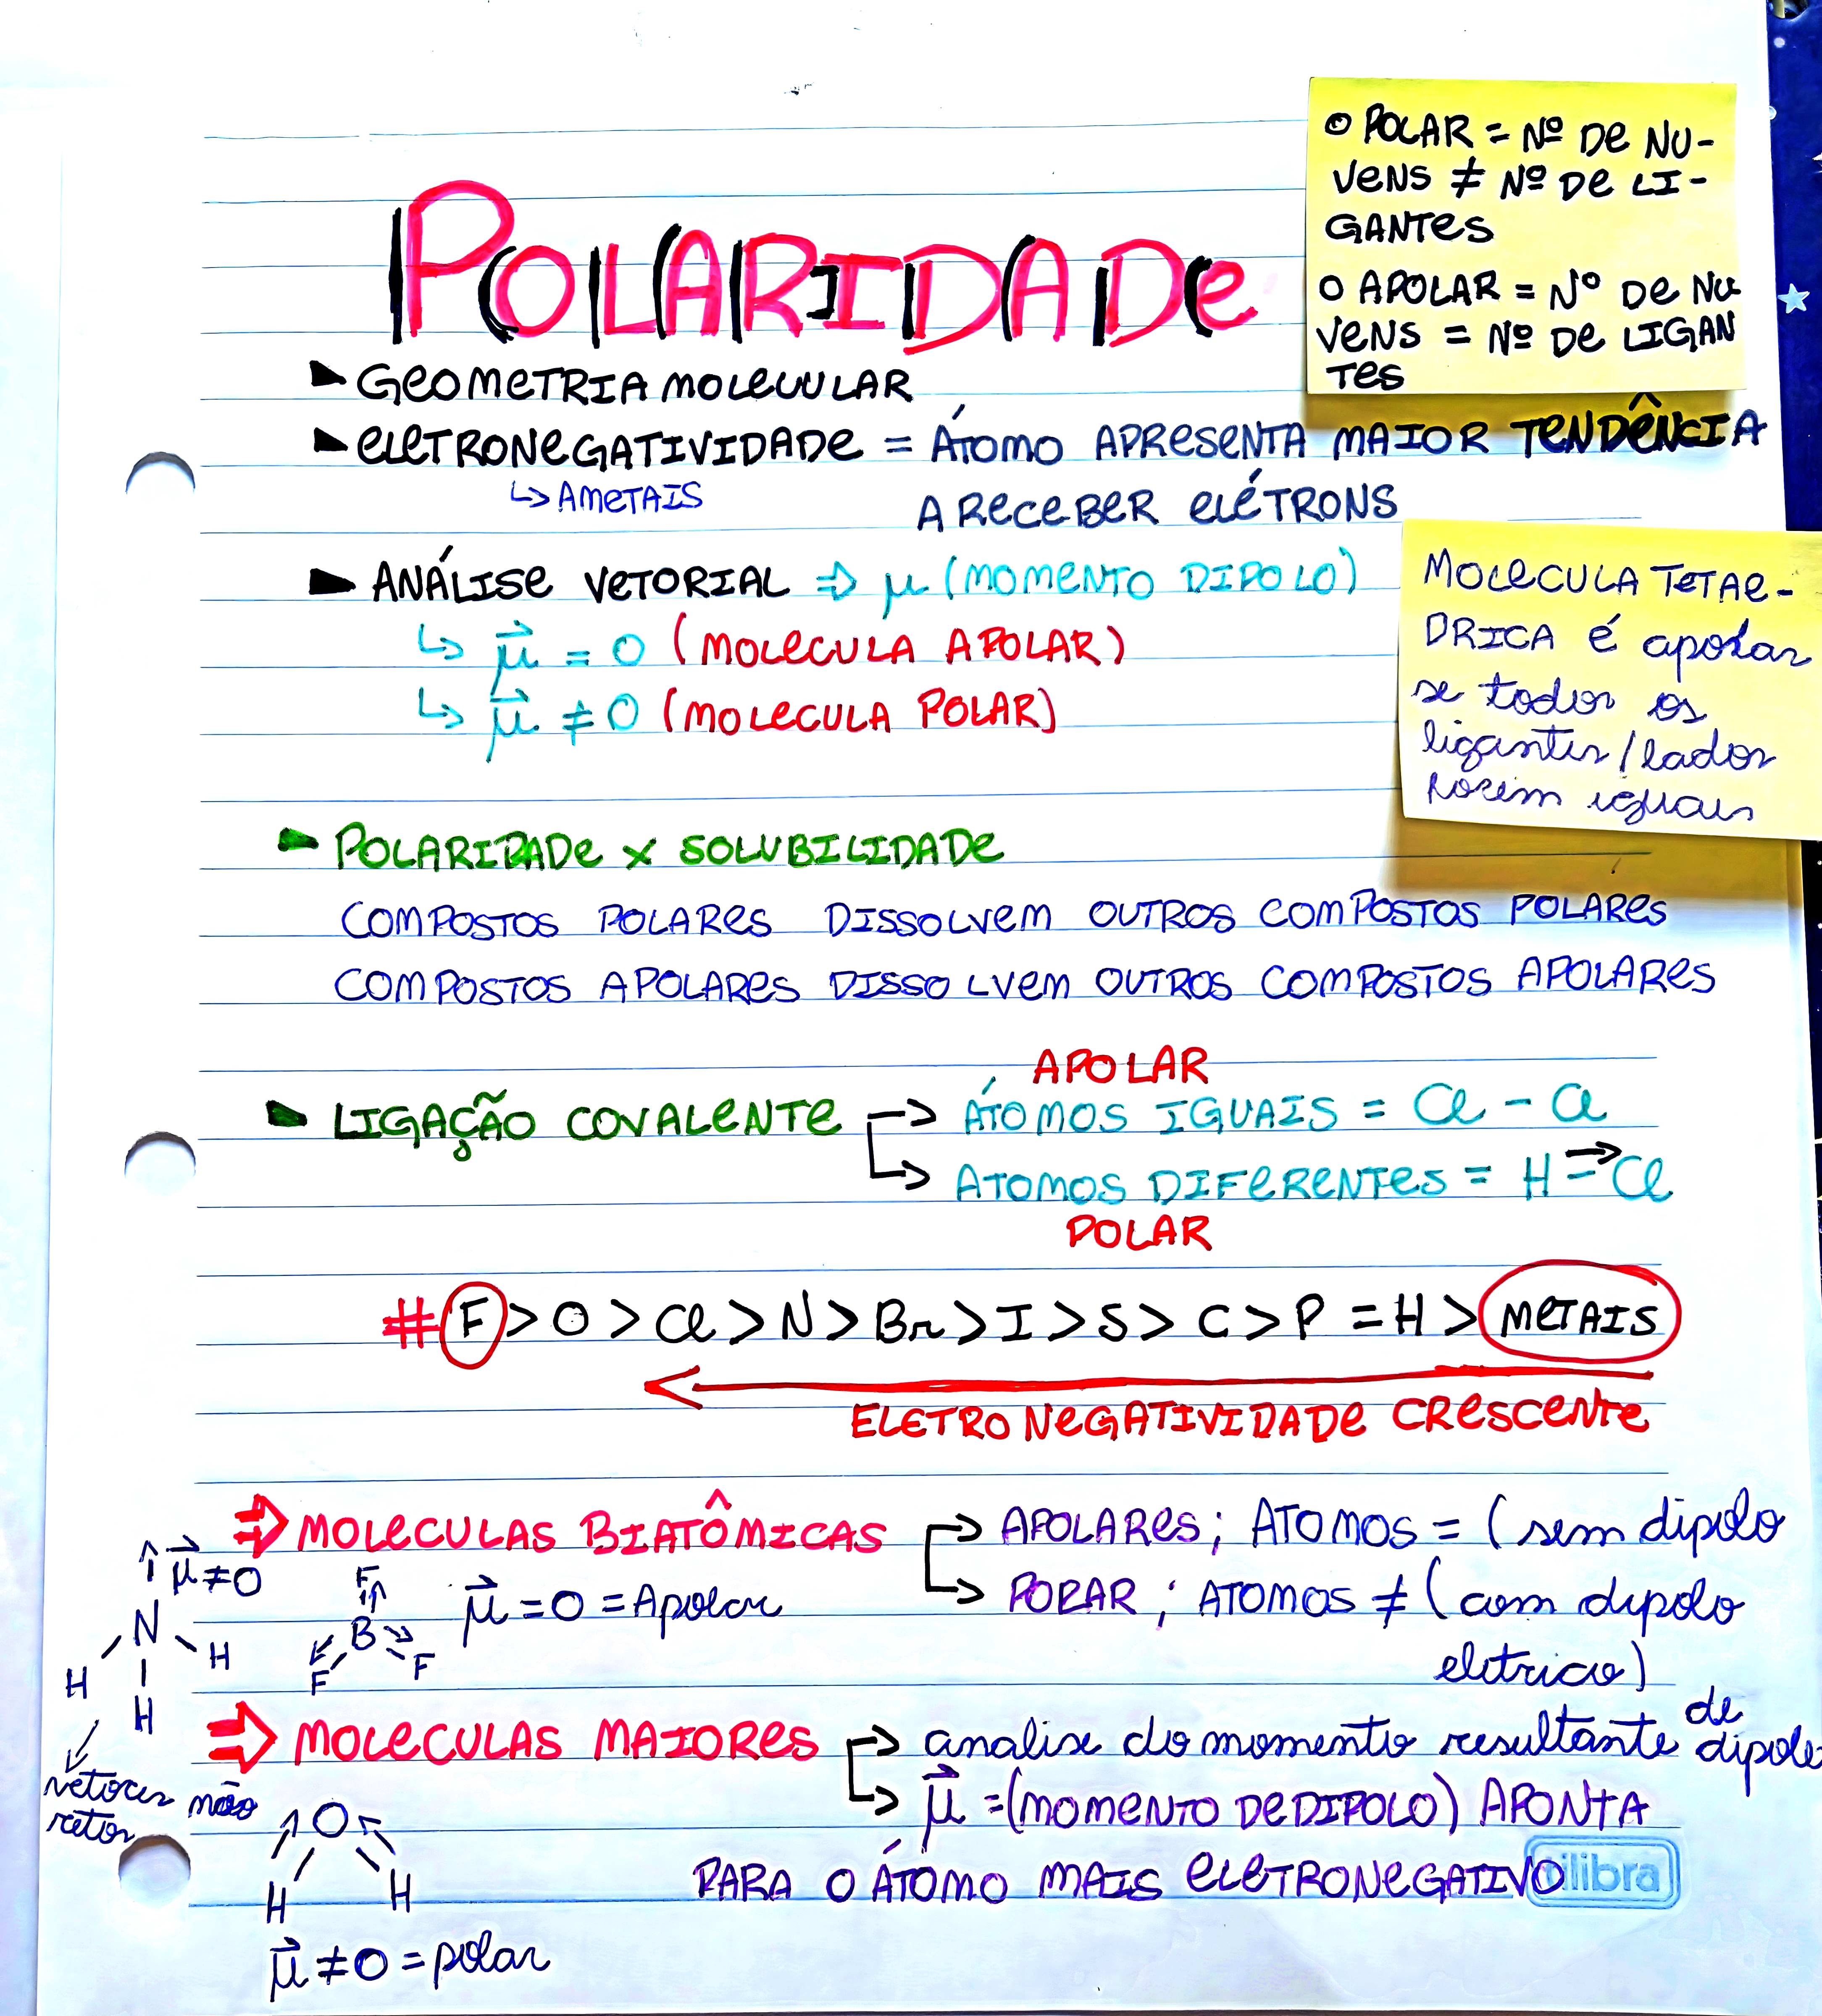 POLAR = Nº De NU-
VeNS ≠ Nº De LI-
GANTeS
APOLAR = Nº De NU
VeNS = Nº De LIGAN
Tes
POLARIDADe
GeOMeTRIA MOLeCULAR
eLeTRONeGATIVIDADe = ÁTOMO APReSeNTA MAIOR TeNDÊNCIA
↳ AMeTAIS
A ReCeBeR eLÉTRONS
ANÁLISe VeTORIAL ⇒ μ (MOMeNTO DIPOLO)
↳ μ⃗ = 0 (MOLeCULA APOLAR)
↳ μ⃗ ≠ 0 (MOLeCULA POLAR)
MOLeCULA TeTAe-
DRICA É apolar
se todos os
ligantes/lados
forem iguais
POLARIDADe x SOLUBILIDADe
COMPOSTOS POLAReS DISSOLVem OUTROS COMPOSTOS POLAReS
COMPOSTOS APOLAReS DISSOLVem OUTROS COMPOSTOS APOLAReS
APOLAR
LIGAÇÃO COVALeNTE → ÁTOMOS IGUAIS = Cl - Cl
→ ATOMOS DIFeReNTeS = H - Cl
POLAR
# F > O > Cl > N > Br > I > S > C > P = H > MeTAIS
ELeTRONeGATIVIDADe CReSCeNTe
⇒ MOLeCULAS BIATÔMICAS → APOLAReS; ATOMOS = (sem dipolo
→ POLAR; ATOMOS ≠ (com dipolo
eletrico)
μ⃗ ≠ 0
N
H H
H
F
B
F F
μ⃗ = 0 = Apolar
⇒ MOLeCULAS MAIOReS → analise do momento resultante de dipolo
→ μ⃗ = (MOMeNTO De DIPOLO) APONTA
PARA O ÁTOMO MAIS eLeTRONeGATIVO
vetores não
retor
O
H H
μ⃗ ≠ 0 = polar
tilibra